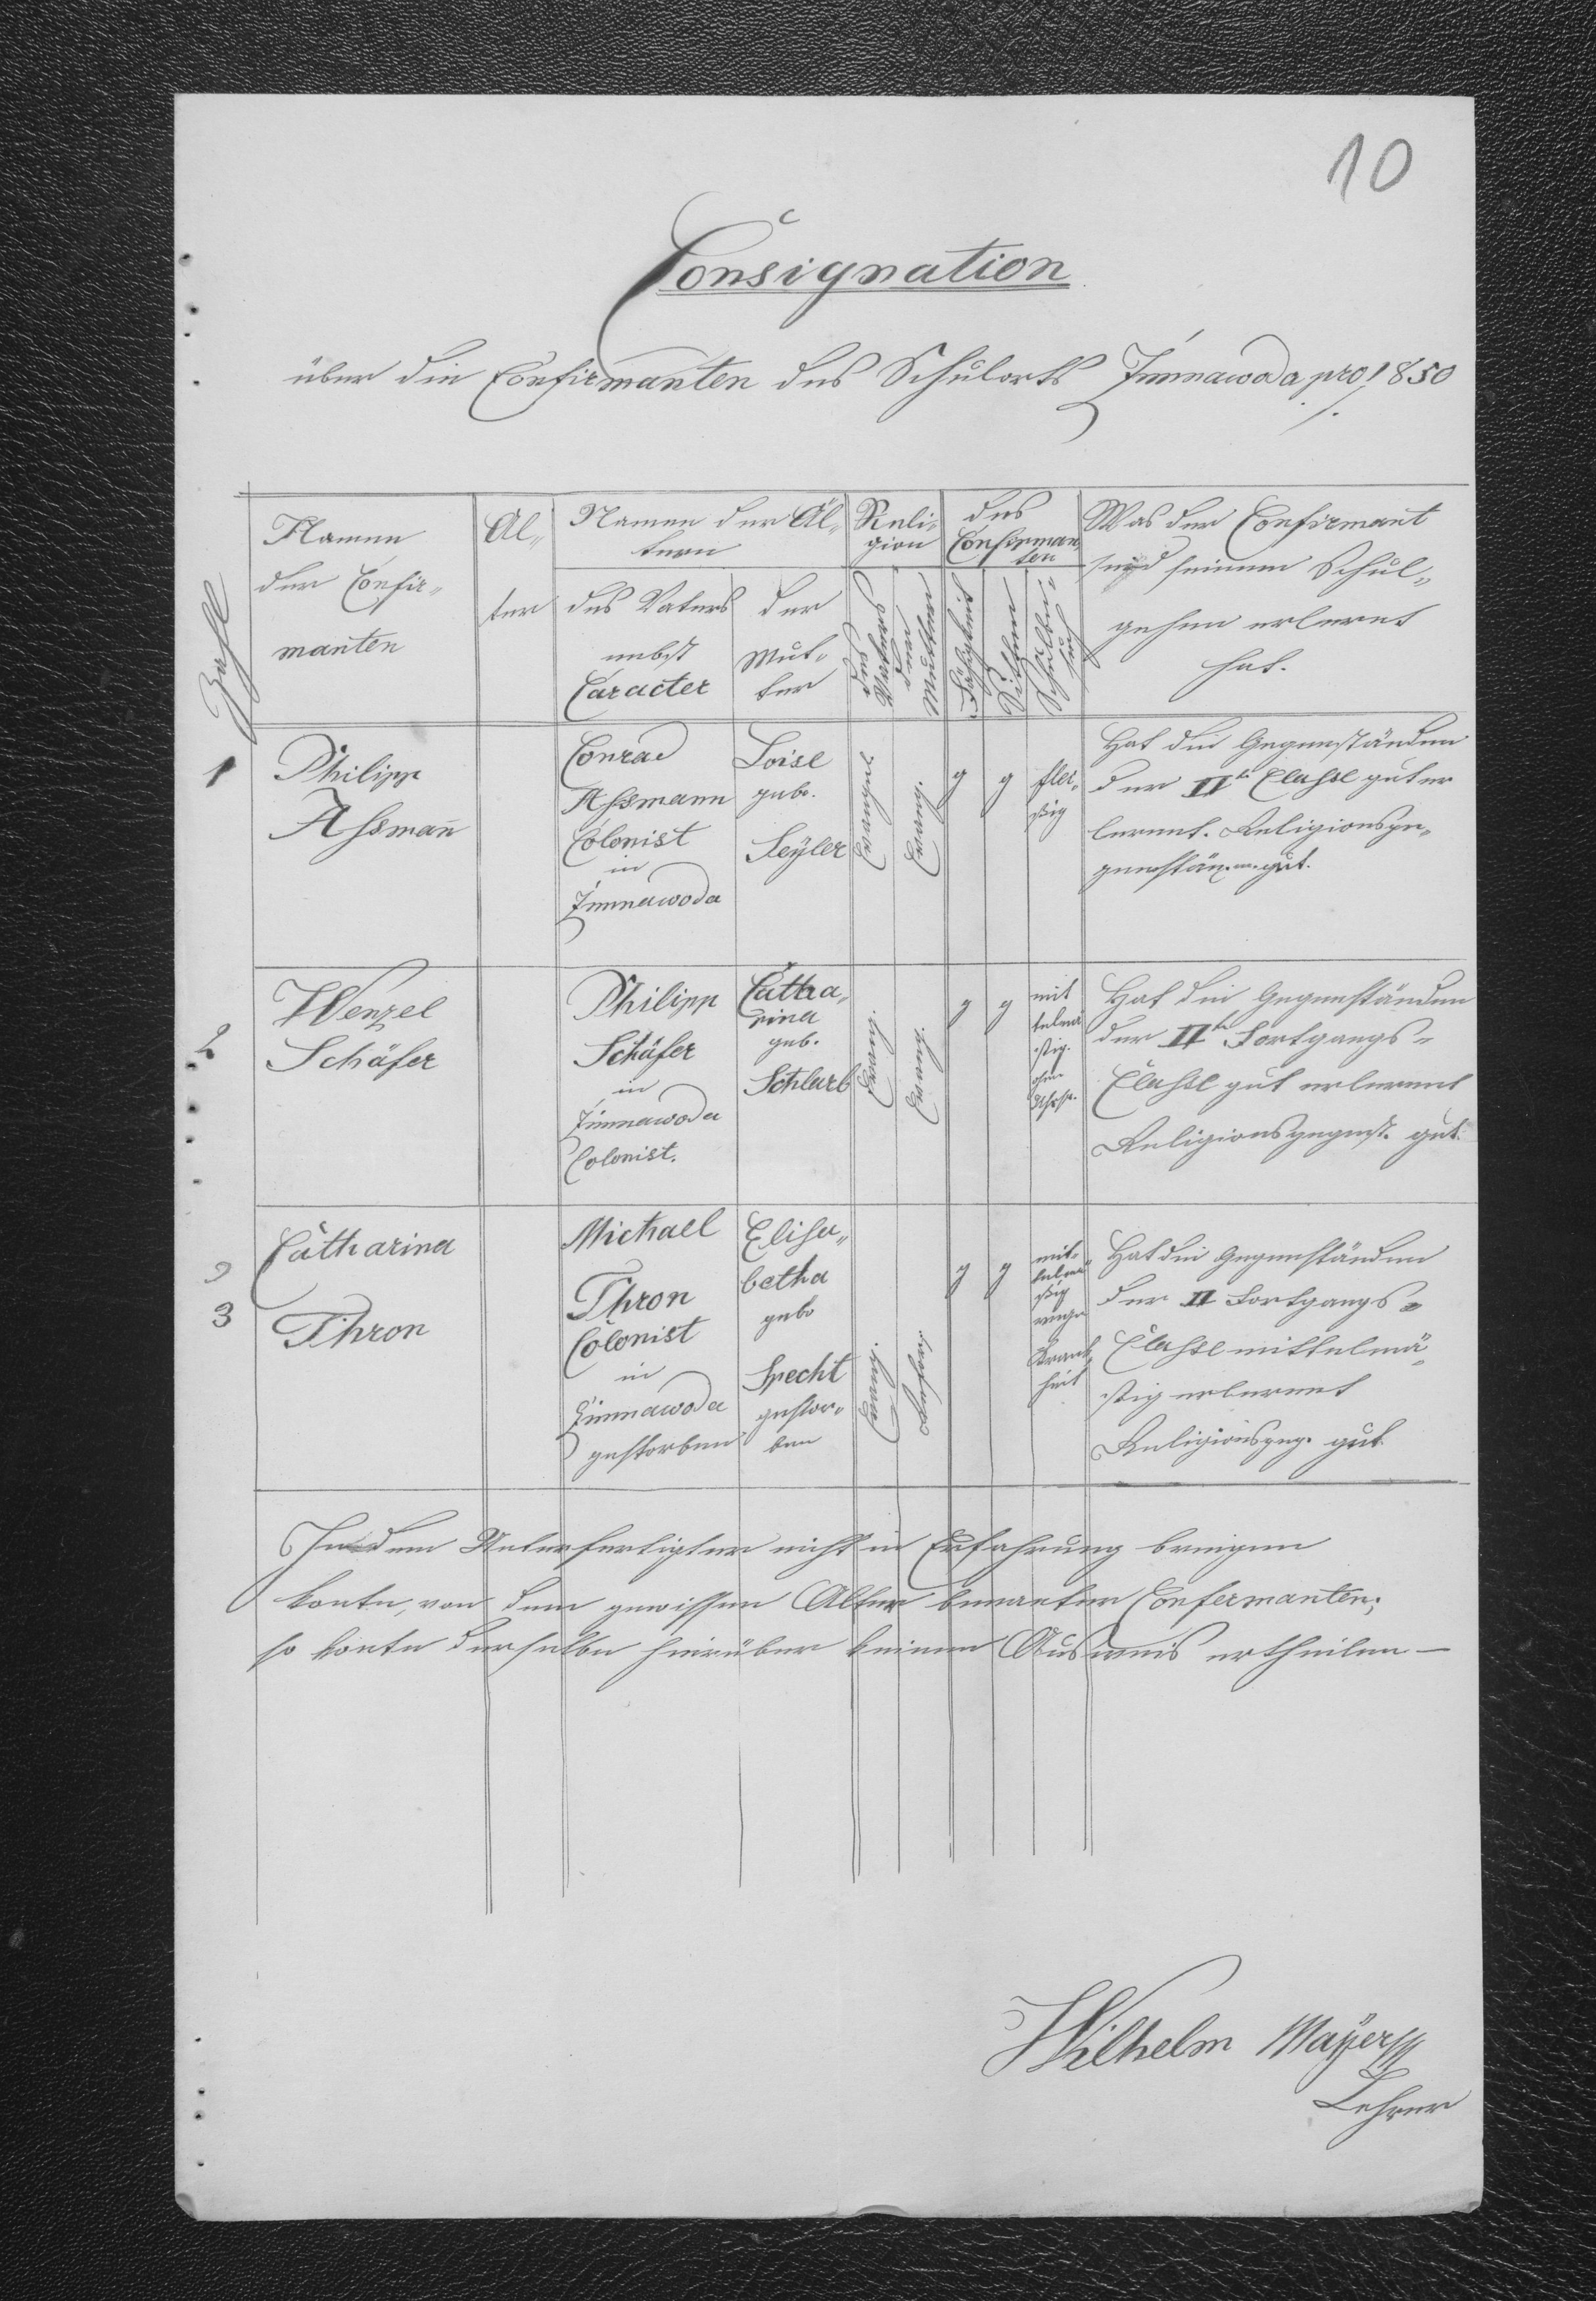 10
Consignation
über die Confirmanten des Schulorts Zimnawoda pro 1850
Zahl
Namen
der Confir„
manten
Al„
ter
Namen der Äl„
tern
des Vaters
nebst
Caracter
der
Mut„
ter
Reli„
gion
des
Vaters
der
Mutter
des
Confirman„
ten
Fähigkeit
Sitten
Was der Confirmant
seinem Schul„
gehen erlernt
hat.
1
Philipp
Assmañ
Conrad
Assmann
Colonist
in
Zimnawoda
Loise
gebr.
Seÿler
Evangel
Evang.
g
g
flei„
ßig
Hat die Gegenständen
der IIte Classe gut er
lernnt. Religionsge„
genstän. gut.
2
Wenzel
Schäfer
Philipp
Schäfer
in
Zimnawoda
Colonist.
Catha„
rina
geb.
Schlarb
Evang.
Evang.
g
g
mit
telmä
ßig.
ohne
Hat die Gegenständen
der IIte Fortgangs„
Classe gut erlernnt
Religionsgegenst. gut.
3
Catharina
Thron
Michael
Thron
Colonist
in
Zimnawoda
gestorben
Elisa„
betha
gebo
Specht
gestor„
ben
Evang.
Reform.
g
g
mit„
telmä
ßig
wegen
Krank„
heit
Hat die Gegenständen
der II Fortgangs„
Classe mittelmä„
ßig erlernnt
Religionsgeg. gut
Indem Unterfertigter nicht in Erfahrung bringen
konte, von dem gewissen Alter benanter Confermanten;
so konte derselbe hierüber keinen Ausweis ertheilen —
Wilhelm Mayer
Lehrer